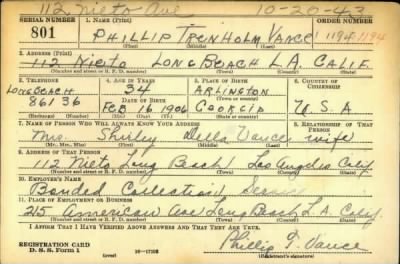 112 Nieto Ave 10-20-43
SERIAL NUMBER 1. NAME (Print)
801 PHILLIP TRENHOLM VANCE 1194 1194
(First) (Middle) (Last)
2. ADDRESS (Print)
112 Nieto LONG BEACH L.A. CALIF.
(Number and street or R. F. D. number) (Town) (County) (State)
3. TELEPHONE 4. AGE IN YEARS 5. PLACE OF BIRTH 6. COUNTRY OF CITIZENSHIP
LONG BEACH 34 ARLINGTON
86136 DATE OF BIRTH
FEB 16 1906 GEORGIA U.S.A
7. NAME OF PERSON WHO WILL ALWAYS KNOW YOUR ADDRESS 8. RELATIONSHIP OF THAT PERSON
Mrs. Shirley Della Vance wife
(Mr., Mrs., Miss) (First) (Middle) (Last)
9. ADDRESS OF THAT PERSON
112 Nieto Long Beach Los Angeles Calif
(Number and street or R. F. D. number) (Town) (County) (State)
10. EMPLOYER'S NAME
Bonded Collection Service
11. PLACE OF EMPLOYMENT OR BUSINESS
215 American Ave Long Beach L.A. Calif.
(Number and street or R. F. D. number) (Town) (County) (State)
I AFFIRM THAT I HAVE VERIFIED ABOVE ANSWERS AND THAT THEY ARE TRUE.
REGISTRATION CARD
D. S. S. Form 1 (over) Phillip T. Vance
(Registrant's signature)